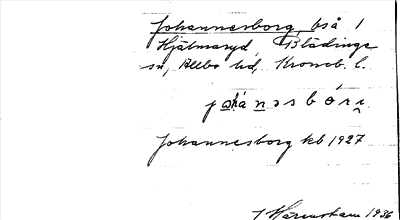 Johannesborg, bså 1
Hjälmaryd, Blädinge
sn, Allbo hd, Kronob. l.
johánəsbórı̯
Johannesborg kb 1927
1936